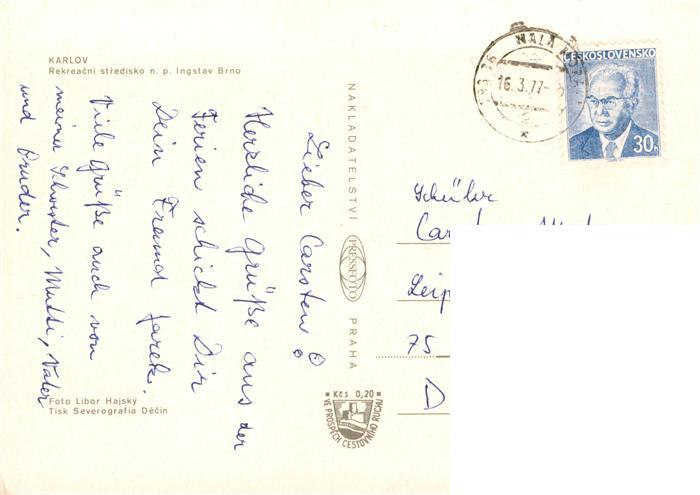 KARLOV
Rekreační středisko n. p. Ingstav Brno
Lieber Carsten!
Herzliche Grüße aus der
Ferien schickt Dir
Dein Freund Jarek.
Viele Grüße auch von
meiner Schwester, Mutti, Vater
und Bruder.
Foto Libor Hajský
Tisk Severografia Děčín
NAKLADATELSTVÍ PRESSFOTO PRAHA
Kčs 0,20
VE PROSPĚCH CESTOVNÍHO RUCHU
MALÁ
16.3.77
ČESKOSLOVENSKO
30h
Schüler
Leip
75
D